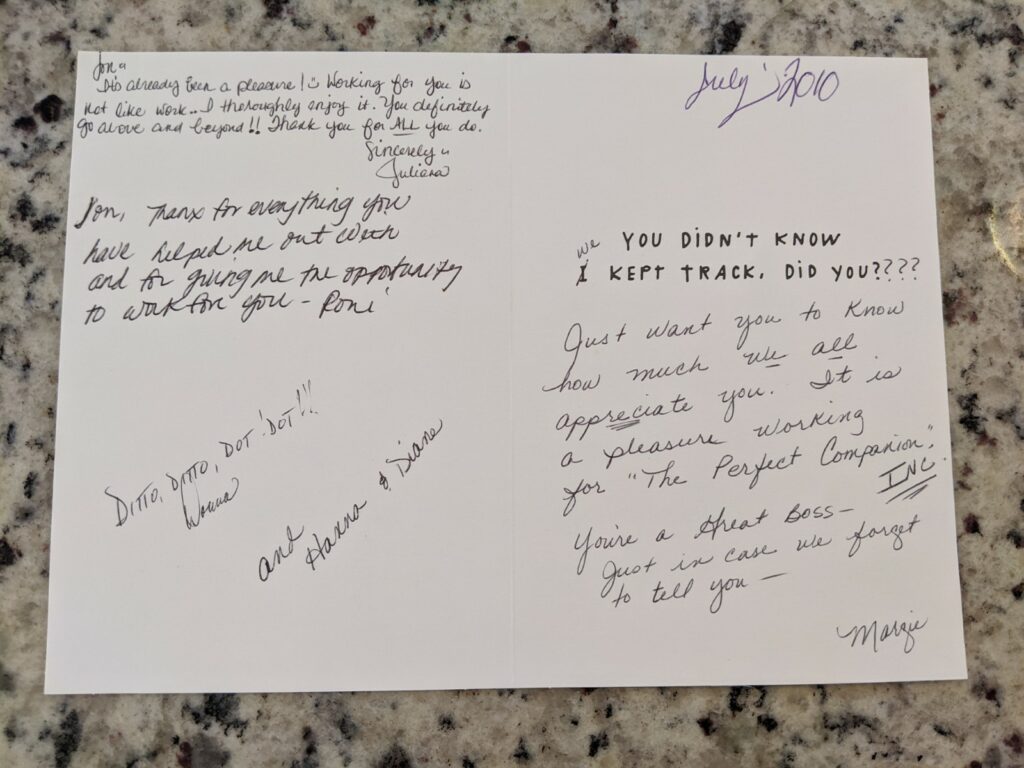 Jon ~
It's already been a pleasure! :) Working for you is
not like work... I thoroughly enjoy it. You definitely
go above and beyond!! Thank you for ALL you do.
Sincerely ~
Juliana
Jon, Thanx for everything you
have helped me out with
and for giving me the opportunity
to work for you - Roni
DITTO, DITTO, DOT! DOT!!!
and
Hanna & Diane
July 2010
YOU DIDN'T KNOW
we
I KEPT TRACK, DID YOU????
Just want you to know
how much we all
appreciate you. It is
a pleasure working
for "The Perfect Companion".
INC.
You're a Great Boss-
Just in case we forget
to tell you —
Margie